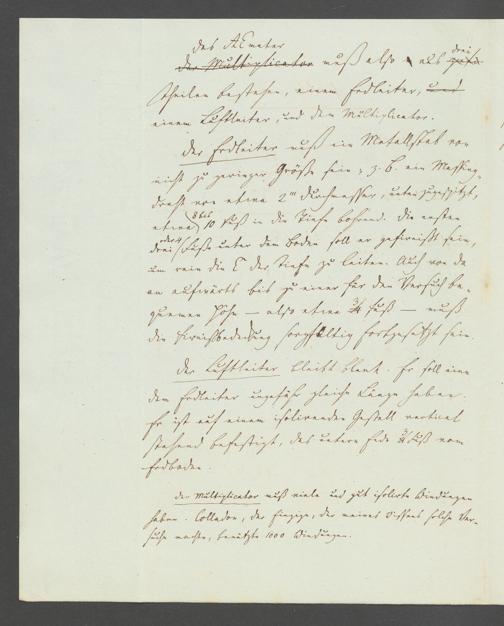 das AEmeter
der Multiplicator muß also aus drei
Theilen bestehen, einem Erdleiter, und
einem Luftleiter, und dem Multiplicator.
Der Erdleiter muß ein Metallstab von
nicht zu geringer Größe sein, z. B. ein Messing-
draht von etwa 2''' Durchmesser, unten zugespitzt,
etwa 8 bis 10 Fuß in die Tiefe bohrend. Die ersten
drei oder 4 Fuß unter dem Boden soll er gefirnißt sein,
um rein die E der Tiefe zu leiten. Auch von da
an aufwärts bis zu einer für den Versuch be-
quemen Höhe — also etwa ¾ Fuß — muß
die Firnißbedeckung sorgfältig fortgesetzt sein.
Der Luftleiter bleibt blank. Er soll eine
dem Erdleiter ungefähr gleiche Länge haben.
Er ist auf einem isolirenden Gestell vertical
stehend befestigt, das untere Ende Fuß vom
Erdboden.
Der Multiplicator muß viele und gut isolirte Windungen
haben. Colladon, der Einzige, der meines Wissens solche Ver-
suche machte, benützte 1000 Windungen.